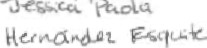 Jessica Paola
Hernández Esquite